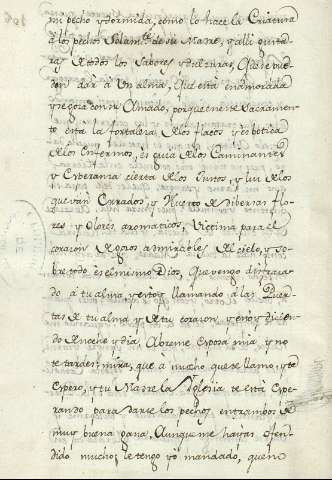 mi pecho y dormida, como lo hace la Criatura
a los pechos Solam.te de su Madre, y alli gusta-
rà de todos los Sabores y dulzuras, que se pue-
den dàr à Un alma, que està enamorada
y se goza con su Amado, porque en este Sacramen-
to està la fortaleza de los flacos y es botica
de los Enfermos, es guia de los Caminantes
y Esperanza cierta de los Justos, y luz de los
que van Errados, y Huerto de diversas flo-
res y Olores aromaticos, Victima para el
corazon gozos admirables del cielo, y so-
bre todo es el mismo Dios, Que vengo disfraza-
do à tu alma y estoy llamando à las Puer-
tas de tu alma y de tu corazon, y en dicien-
do de noche y dia, Abreme Esposa mia, y no
te tardes; mira, que à mucho que te llamo, y te
Espero, y tu Madre la Yglesia te està Espe-
rando para darte los pechos, entrambos de
muy buena gana, Aunque me hayas ofen-
dido mucho, le tengo yo mandado, que no